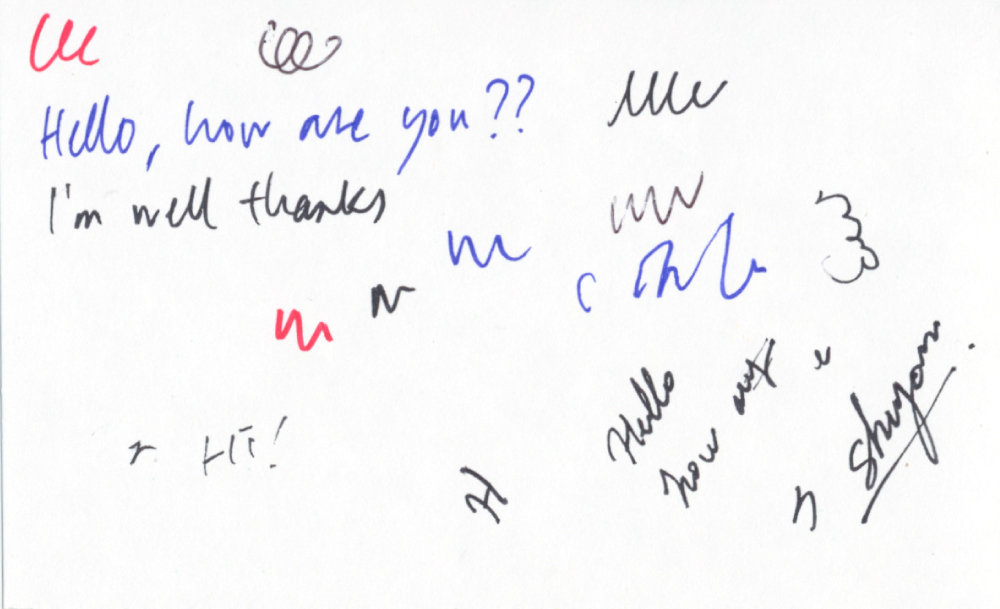 Hello, how are you??
I'm well thanks
Hi!
H
Hello
how
Shyam.